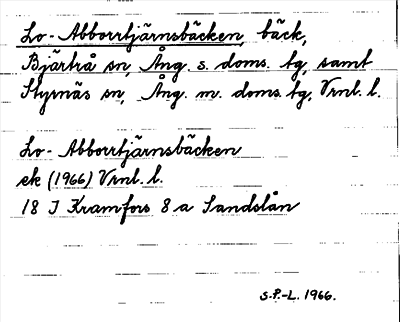 Lo-Abborrtjärnsbäcken, bäck,
Bjärtrå sn, Ång. s. doms. tg, samt
Styrnäs sn, Ång. m. doms. tg, Vrnl. l.
Lo-Abborrtjärnsbäcken
ek (1966) Vrnl. l.
18 I Kramfors 8 a Sandslån
S.P.-L. 1966.